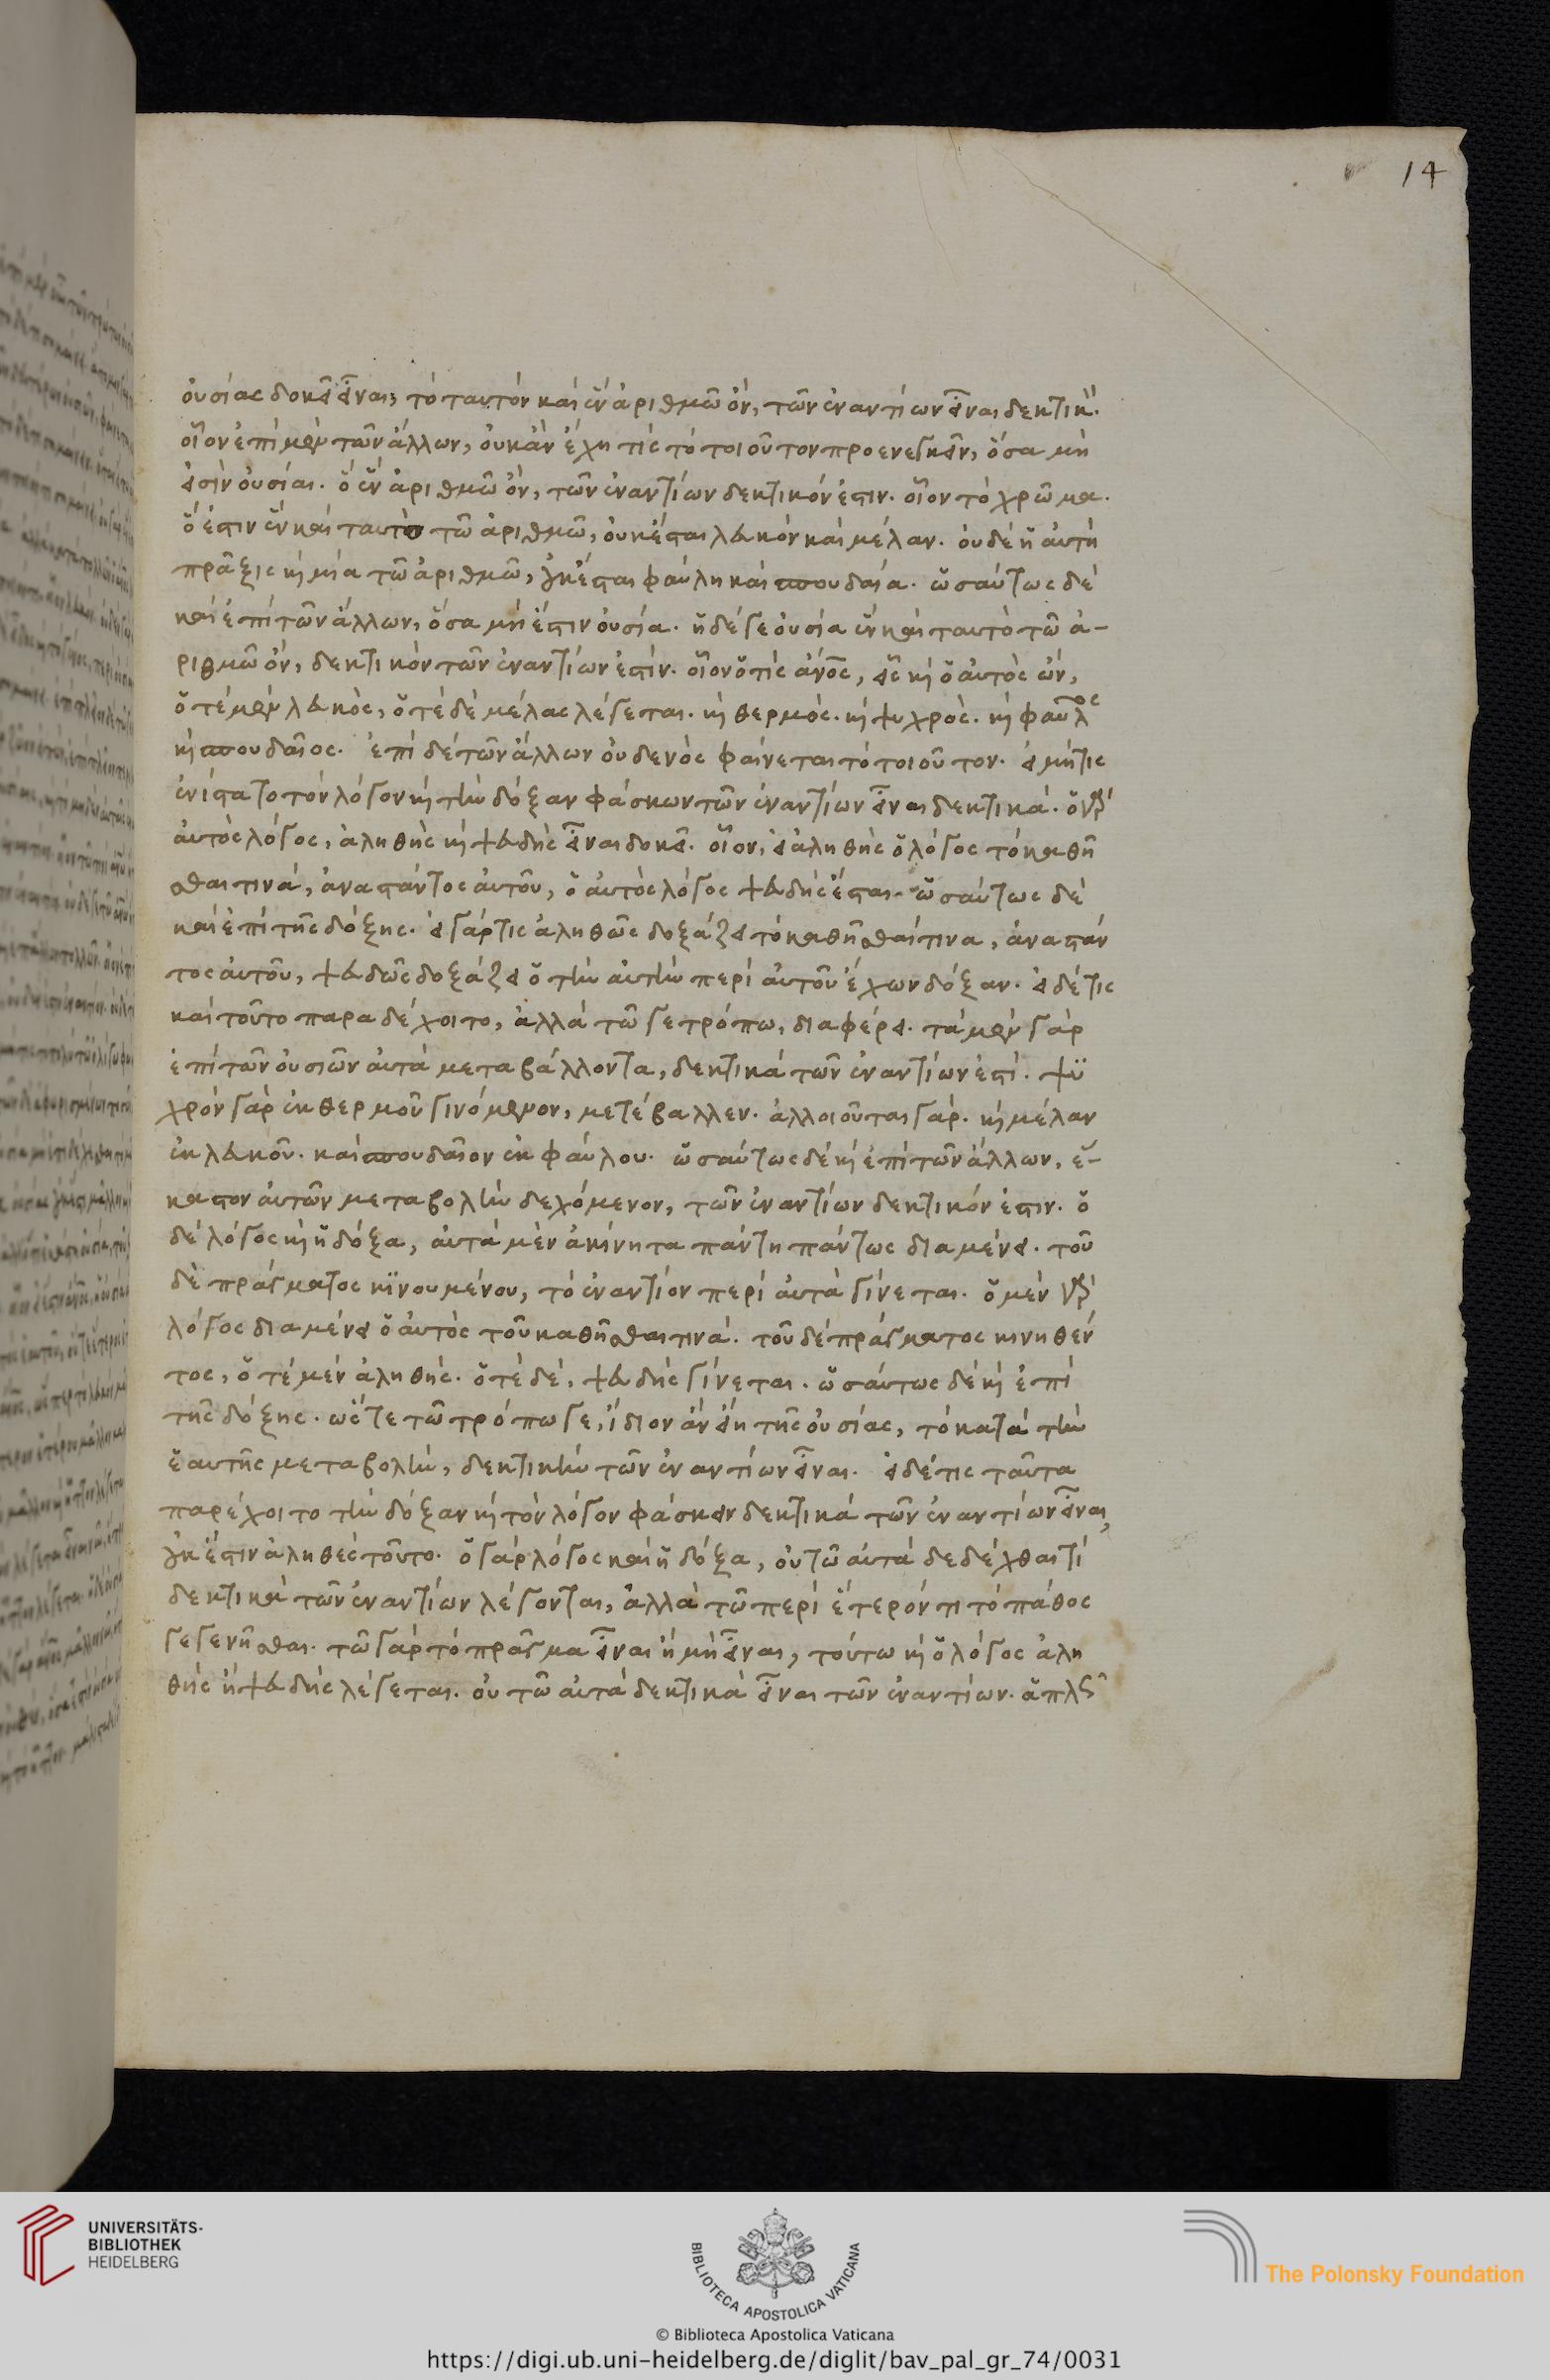 14
οὐσίας δοκεῖ εἶναι, τὸ ταυτὸν καὶ ἓν ἀριθμῶ ὂν, τῶν ἐναντίων εἶναι δεκτικ̀.
οἷον ἐπὶ μὲν τῶν ἄλλων, οὐκ ἂν ἔχη τίς τὸ τοιοῦτον προενεγκεῖν, ὅσα μὴ
εἰσὶν οὐσίαι. ὃ ἓν ἀριθμῶ ὂν, τῶν ἐναντίων δεκτικόν ἐστιν. οἷον τὸ χρῶμα.
ὅ ἐστιν ἓν καὶ ταυτὸ τῶ ἀριθμῶ, οὐκ ἔσται λευκὸν καὶ μέλαν. οὐδὲ ἡ αὐτὴ
πρᾶξις κ̀ μία τῶ ἀριθμῶ, οὐκ ἔσται φαύλη καὶ σπουδαία. ὡσαύτως δὲ
καὶ ἐπὶ τῶν ἄλλων, ὅσα μή ἐστιν οὐσία. ἡ δέ γε οὐσία ἓν καὶ ταυτὸ τῶ ἀ-
ριθμῶ ὂν, δεκτικὸν τῶν ἐναντίων ἐστίν. οἷον ὅ τὶς ἄν̅ο̅ς, εἷς κ̀ ὁ αὐτὸς ὢν,
ὁτὲ μὲν λευκὸς, ὁτὲ δὲ μέλας λέγεται. κ̀ θερμὸς. κ̀ ψυχρὸς. κ̀ φαῦλος
κ̀ σπουδαῖος. ἐπὶ δὲ τῶν ἄλλων οὐδενὸς φαίνεται τὸ τοιοῦτον. εἰ μήτις
ἐνίστατο τὸν λόγον κ̀ τὴν δόξαν φάσκων τῶν ἐναντίων εἶναι δεκτικά. ὁ γὰρ
αὐτὸς λόγος, ἀληθὴς κ̀ ψευδὴς εἶναι δοκεῖ. οἷον, εἰ ἀληθὴς ὁ λόγος τὸ καθῆ
σθαι τινὰ, ἀναστάντος αὐτοῦ, ὁ αὐτὸς λόγος ψευδὴς ἔσται. ὡσαύτως δὲ
καὶ ἐπὶ τῆς δόξης. εἰ γάρ τις ἀληθῶς δοξάζει τὸ καθῆσθαί τινα, ἀναστάν
τος αὐτοῦ, ψευδῶς δοξάζει ὁ τὴν αὐτὴν περὶ αὐτοῦ ἔχων δόξαν. εἰ δέ τις
καὶ τοῦτο παραδέχοιτο, ἀλλὰ τῶ γε τρόπω, διαφέρει. τὰ μὲν γὰρ
ἐπὶ τῶν οὐσιῶν αὐτὰ μεταβάλλοντα, δεκτικὰ τῶν ἐναντίων ἐστί. ψϋ
χρὸν γὰρ ἐκ θερμοῦ γινόμενον, μετέβαλλεν. ἀλλοιοῦται γάρ. κ̀ μέλαν
ἐκ λευκοῦ. καὶ σπουδαῖον ἐκ φαύλου. ὡσαύτως δὲ κ̀ ἐπὶ τῶν ἄλλων, ἕ-
καστον αὐτῶν μεταβολὴν δεχόμενον, τῶν ἐναντίων δεκτικόν ἐστιν. ὁ
δὲ λόγος κ̀ ἡ δόξα, αὐτὰ μὲν ἀκίνητα πάντη πάντως διαμένει. τοῦ
δὲ πράγματος κϊνουμένου, τὸ ἐναντίον περὶ αὐτὰ γίνεται. ὁ μὲν γὰρ
λόγος διαμένει ὁ αὐτὸς τοῦ καθῆσθαι τινά. τοῦ δὲ πράγματος κινηθέν
τος, ὁτὲ μὲν ἀληθὴς. ὁτὲ δὲ, ψευδὴς γίνεται. ὡσαύτως δὲ κ̀ ἐπὶ
τῆς δόξης. ὥστε τῶ τρόπω γε, ἴδιον ἂν εἴη τῆς οὐσίας, τὸ κατὰ τὴν
ἑαυτῆς μεταβολὴν, δεκτικὴν τῶν ἐναντίων εἶναι. εἰ δέ τις ταῦτα
παρέχοιτο τὴν δόξαν κ̀ τὸν λόγον φάσκειν δεκτικὰ τῶν ἐναντίων εἶναι,
οὐκ ἔστιν ἀληθὲς τοῦτο. ὁ γὰρ λόγος καὶ ἡ δόξα, οὐ τῶ αὐτὰ δεδέχθαι τί
δεκτικὰ τῶν ἐναντίων λέγονται, ἀλλὰ τῶ περὶ ἕτερόν τι τὸ πάθος
γεγενῆσθαι. τῶ γὰρ τὸ πρᾶγμα εἶναι ἢ μὴ εἶναι, τούτω κ̀ ὁ λόγος ἀλη
θὴς ἢ ψευδὴς λέγεται. οὐ τῶ αὐτὰ δεκτικὰ εἶναι τῶν ἐναντίων. ἁπλῶς
UNIVERSITÄTS-
BIBLIOTHEK
HEIDELBERG
BIBLIOTECA APOSTOLICA VATICANA
The Polonsky Foundation
© Biblioteca Apostolica Vaticana
https://digi.ub.uni-heidelberg.de/diglit/bav_pal_gr_74/0031